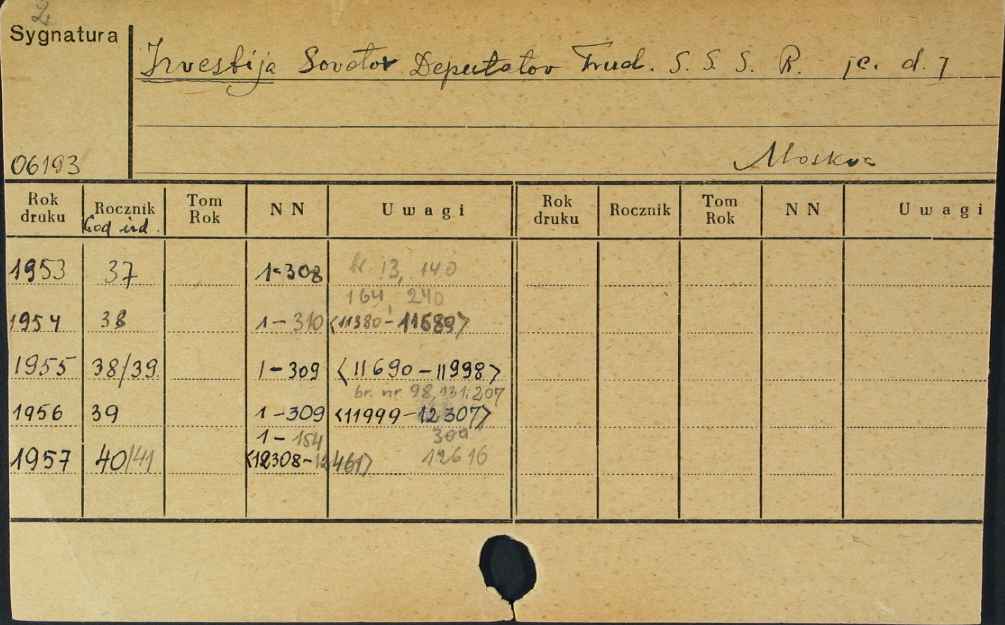 2
Sygnatura
Izvestija Sovetov Deputatov Trud. S. S. S. R. /c. d./
06193
Moskva
Rok druku Rocznik Tom Rok NN Uwagi Rok druku Rocznik Tom Rok NN Uwagi
God izd.
1953 37 1-308 br. 13, 140
164, 240
1954 38 1-310 <11380-11689>
1955 38/39 1-309 <11690-11998>
br. nr. 98, 131, 207
1956 39 1-309 <11999-12307>
1-154 309
1957 40/41 <12308-12461> 12616